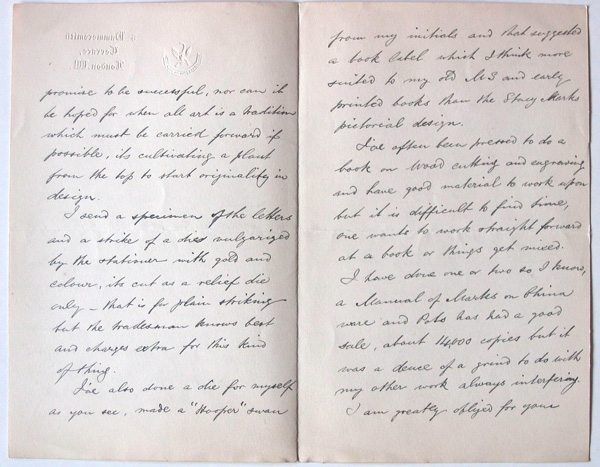 promise to be successful, nor can it
be hoped for when all art is a tradition
which must be carried forward if
possible, its cultivating a plant
from the top to start originality in
design.
I send a specimen of the letters
and a strike of a dies vulgarized
by the stationer with gold and
colour, its cut as a relief die
only – that is for plain striking
but the tradesman knows best
and charges extra for this kind
of thing.
I've also done a die for myself
as you see, made a "Hooper" swan
from my initials and that suggested
a book label which I think more
suited to my old M.S and early
printed books than the Stacy Marks
pictorial design.
I've often been pressed to do a
book on wood cutting and engraving
and have good material to work upon
but it is difficult to find time,
one wants to work straight forward
at a book or things get mixed.
I have done one or two so I know,
a Manual of Marks on China
ware and Pots has had a good
sale, about 14,000 copies but it
was a deuce of a grind to do with
my other work always interfering.
I am greatly obliged for your